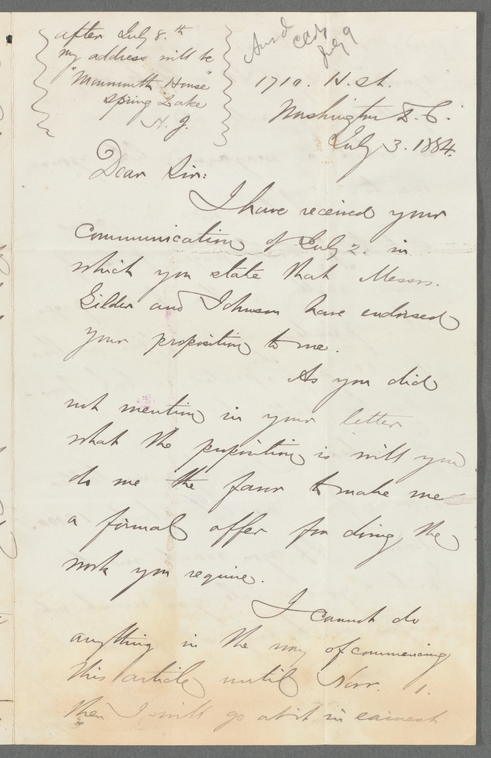 after July 8.th
my address will be
"Monmouth House"
Spring Lake
N. J.
Ansd
CCB
July 9
1710. N. St.
Washington D. C.
July 3. 1884.
Dear Sir:
I have received your
communication of July 2. in
which you state that Messrs.
Gilder and Johnson have endorsed
your proposition to me.
As you did
not mention in your letter
what the proposition is will you
do me the favor to make me
a formal offer for doing the
work you require.
I cannot do
anything in the way of commencing
this article until Nov. 1.
then I will go at it in earnest